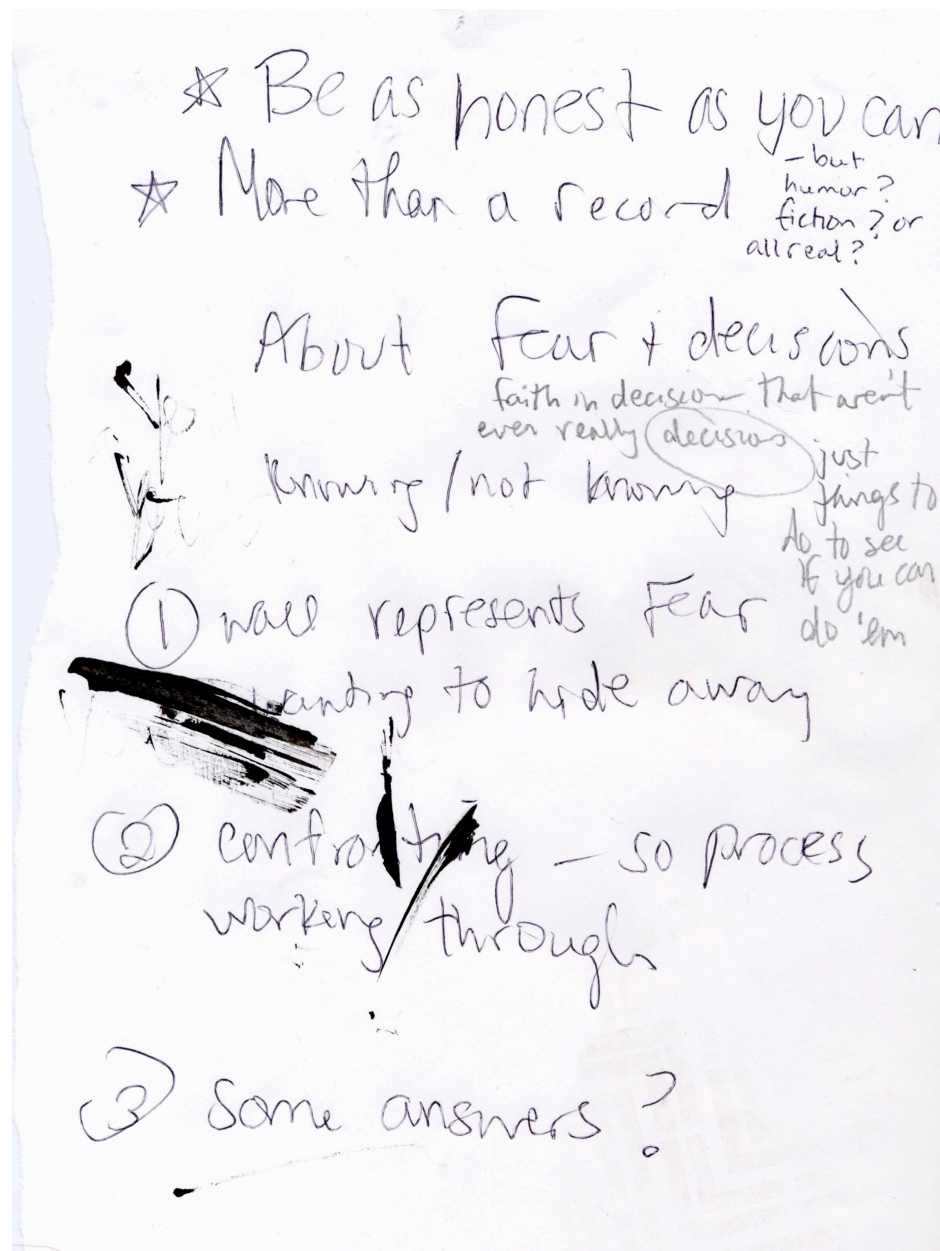 ☆ Be as honest as you can
☆ More than a record
- but
humor?
fiction? or
all real?
About Fear + decisions
faith in decisions that aren't
ever really decisions
just
things to
do to see
if you can
do 'em
Knowing / not knowing
① wall represents Fear
wanting to hide away
② confronting - so process
working through
③ Some answers?